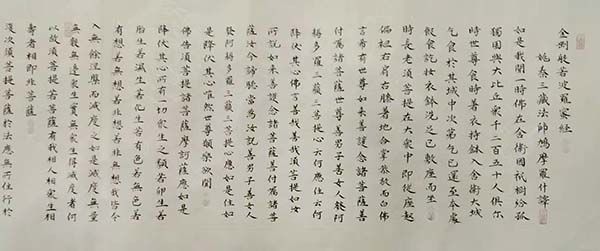 金剛般若波羅蜜經
姚秦三藏法師鳩摩羅什譯
如是我聞一時佛在舍衛國祇樹給孤
獨園與大比丘衆千二百五十人俱尔
時世尊食時著衣持鉢入舍衛大城
乞食於其城中次第乞已還至本處
飯食訖收衣鉢洗足已敷座而坐
時長老須菩提在大衆中即從座起
偏袒右肩右膝著地合掌恭敬而白佛
言希有世尊如来善護念諸菩薩善
付囑諸菩薩世尊善男子善女人發阿
耨多羅三藐三菩提心云何應住云何
降伏其心佛言善哉善哉須菩提如汝
所說如来善護念諸菩薩善付囑諸菩
薩汝今諦聽當為汝說善男子善女人
發阿耨多羅三藐三菩提心應如是住如
是降伏其心唯然世尊願樂欲聞
佛告須菩提諸菩薩摩訶薩應如是
降伏其心所有一切衆生之類若卵生若
胎生若濕生若化生若有色若無色若
有想若無想若非有想非無想我皆令
入無餘涅槃而滅度之如是滅度無量
無數無邊衆生實無衆生得滅度者何
以故須菩提若菩薩有我相人相衆生相
壽者相即非菩薩
復次須菩提菩薩於法應無所住行於